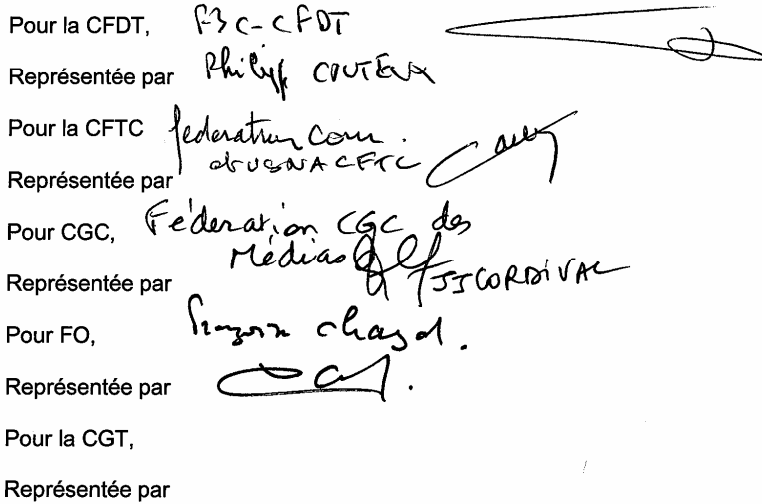 Pour la CFDT, F3C-CFDT
Représentée par Philippe COUTEUX
Pour la CFTC federation Com.
CFTC
Représentée par
Pour CGC, Fédération CGC des
Médias
Représentée par JJ CORDIVAL
Pour FO, chazal.
Représentée par
Pour la CGT,
Représentée par